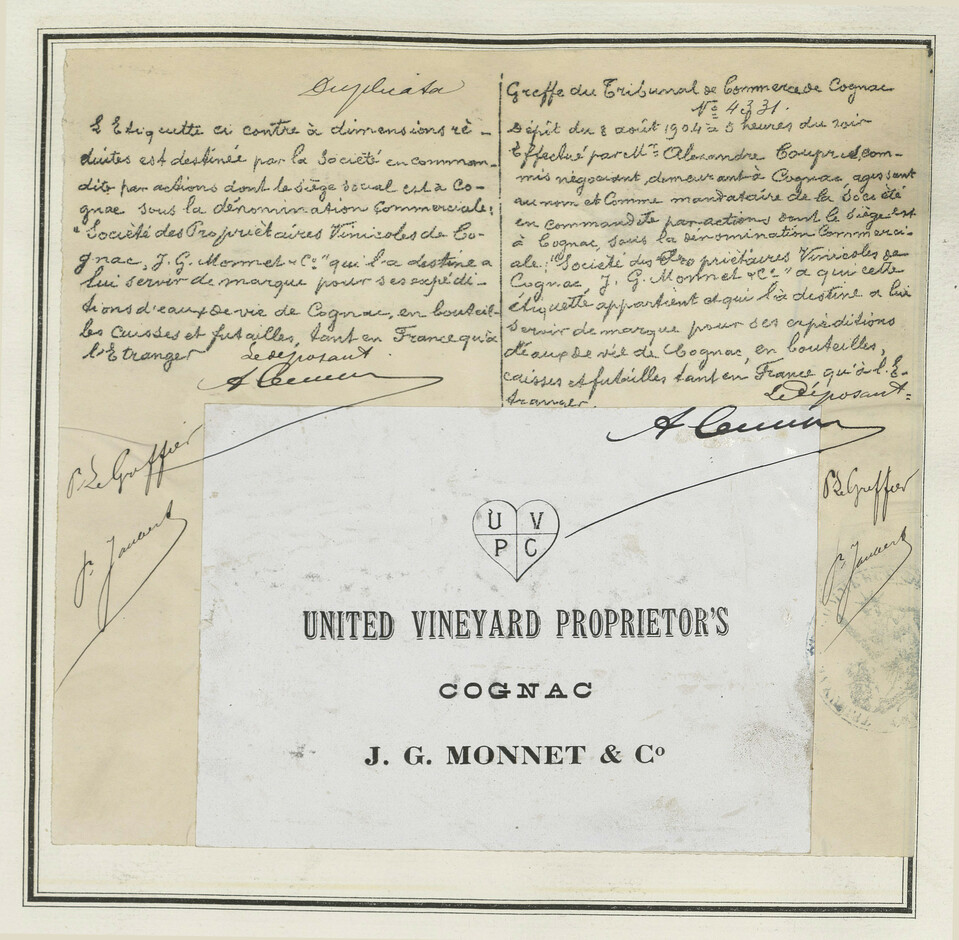 Duplicata
L'Etiquette ci contre à dimensions ré-
duites est destinée par la Société en comman-
dite par actions dont le siège social est à Co-
gnac sous la dénomination Commerciale:
"Société des Propriétaires Vinicoles de Co-
gnac, J. G. Monnet & Co" qui l'a destine a
lui servir de marque pour ses expédi-
tions d'eaux de vie de Cognac, en bouteil-
les Caisses et futailles, tant en France qu'à
l'Etranger
Le déposant
P. Le Greffier
Greffe du Tribunal de Commerce de Cognac
No 4331.
Dépôt du 8 août 1904 à 5 heures du soir
Effectué par Mr Alexandre com-
mis négociant, demeurant à Cognac agissant
au nom et comme mandataire de la Société
en Commandite par actions dont le siège est
à Cognac, sous la dénomination Commerci-
ale: "Société des Propriétaires Vinicoles de
Cognac J. G. Monnet & Co" a qui cette
étiquette appartient et qui l'a destine a lui
servir de marque pour ses expéditions
d'eaux de vie de Cognac, en bouteilles,
caisses et futailles tant en France qu'à l'E-
tranger
Le Déposant
P. Le Greffier
U V
P C
UNITED VINEYARD PROPRIETOR'S
COGNAC
J. G. MONNET & Co